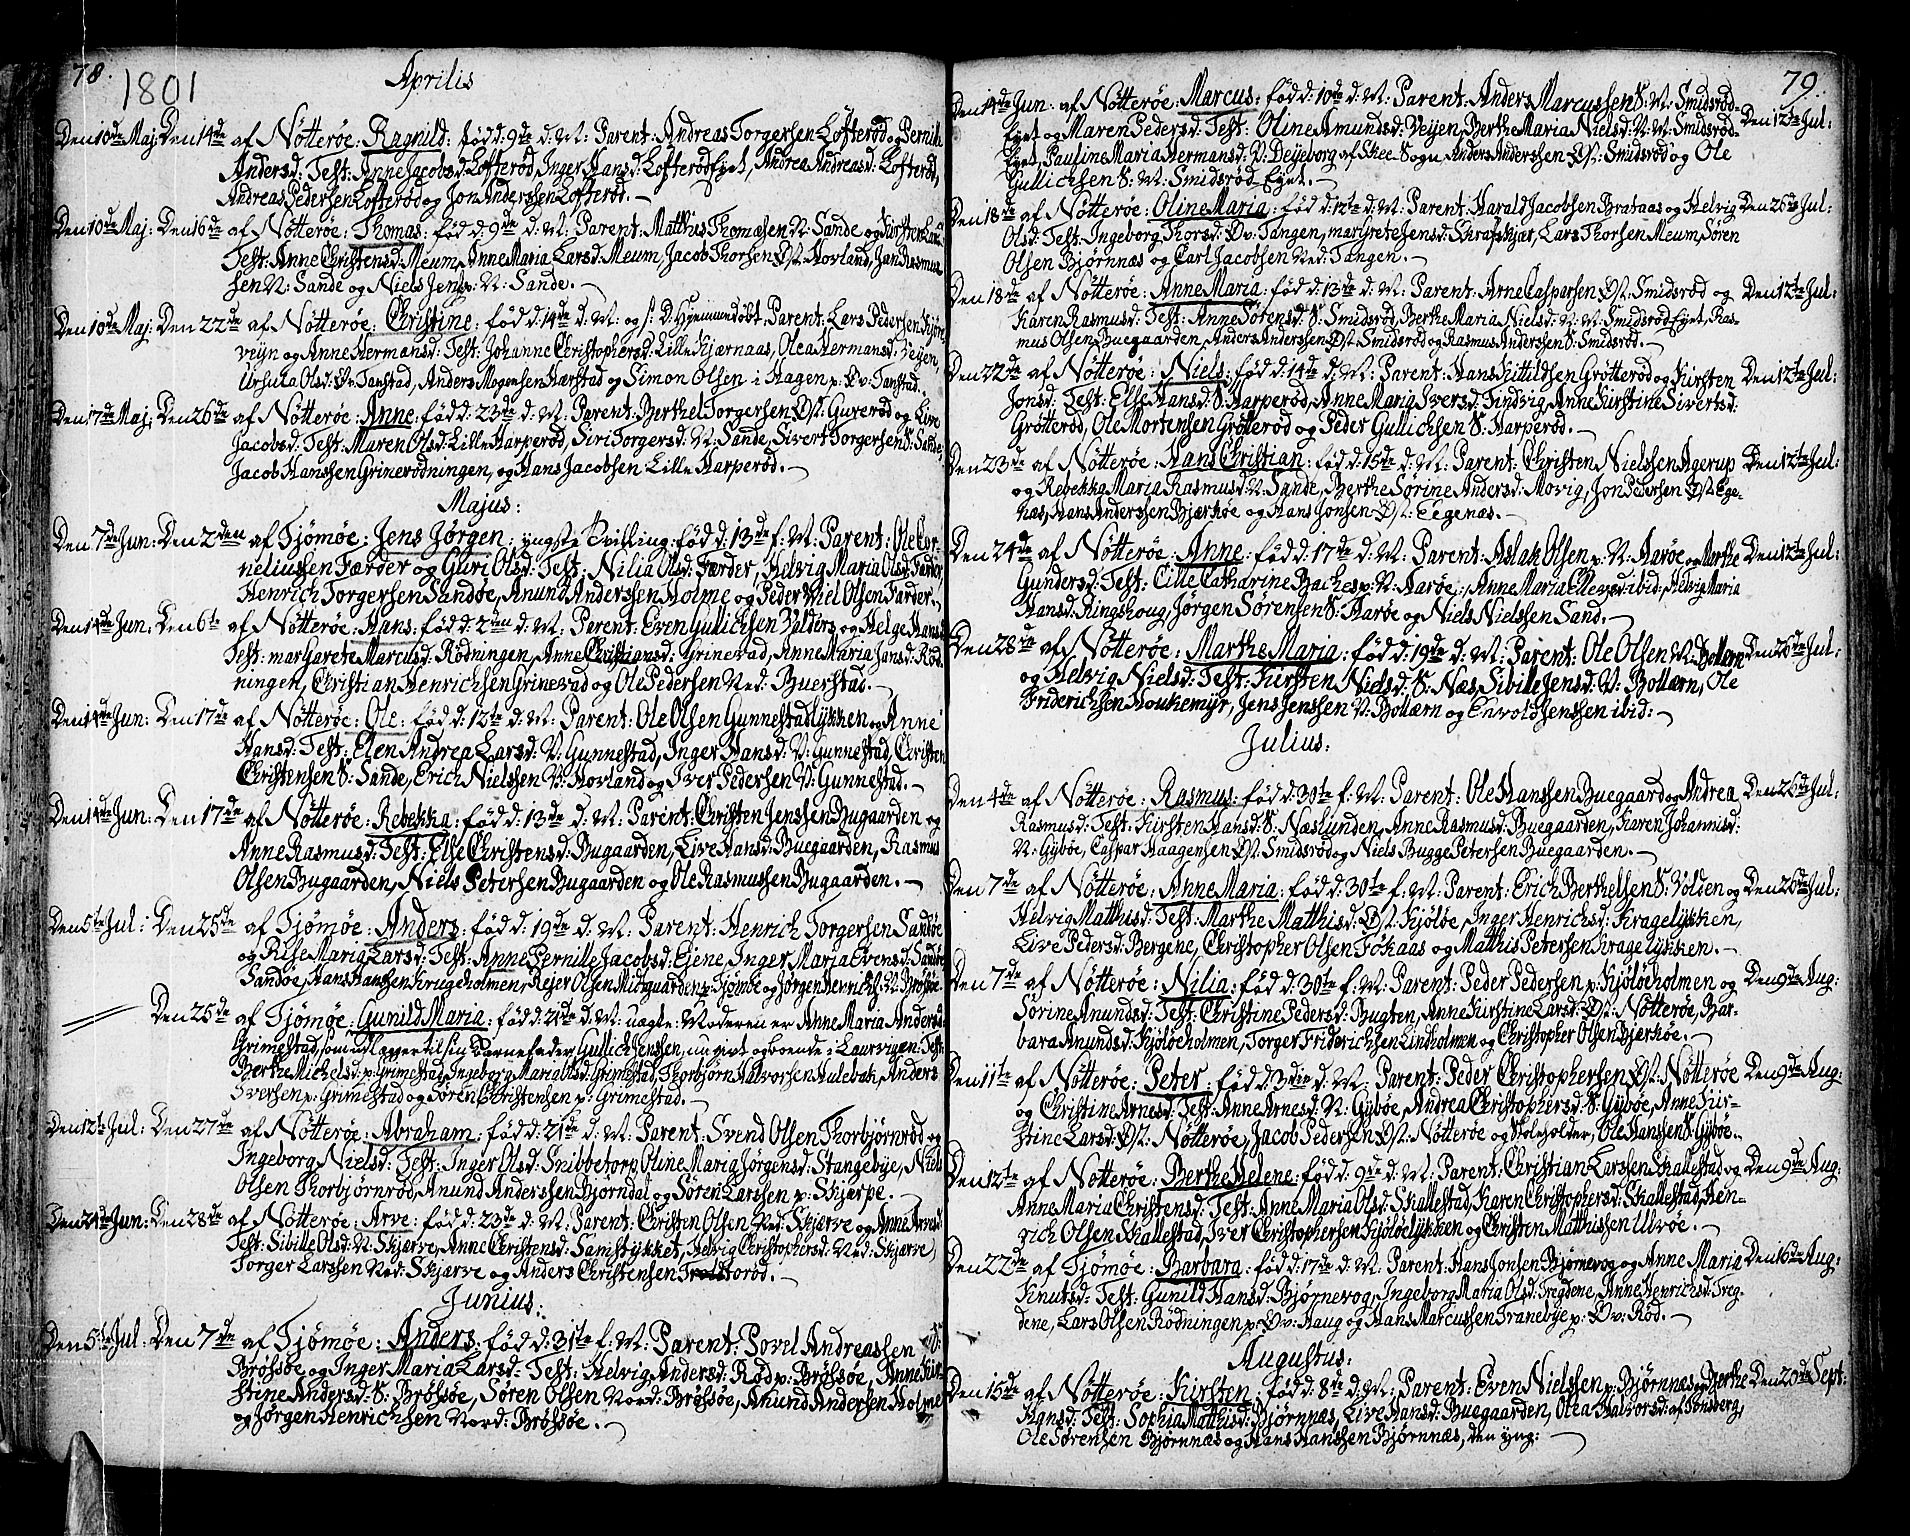 78.
1801
Aprilis
Den 10de Maj: Den 14de af Nötterøe: Ragnild: född: 9de d: M: Parent: Andreas Torgersen Lofterød, Pernille
Andersd: Test: Anne Jacobsd: Lofterød, Inger Hansd: Lofterød Eyet, Andrea Andreasd: Lofterød,
Andreas Pedersen Lofterød og Jon Anderssen Lofterød.
Den 10de Maj: Den 16de af Nötterøe: Thomas: född: 9de d: M: Parent: Matthis Thomesen N: Sande og Kirsten Larsd
Test: Anne Christensd: Meum, Anne Maria Larsd: Meum, Jacob Thorsen Øst: Hovland, Jan Rasmus
sen N: Sande og Niels Jens p: N: Sande.
Den 10de Maj: Den 22de af Nötterøe: Christine: född: 14de d: M: og s: D: Hjemmedöbt. Parent: Lars Pedersen
veyn og Anne Hermansd: Test: Johanne Christophersd: Lille Kjærnaas, Olea Hermansd: Veyen,
Ursula Olsd: Øv: Tanstad, Anders Mogensen Hærstad og Simon Olsen i Hagen p: Øv: Tanstad.
Den 17de Maj: Den 26de af Nötterøe: Anne: född: 23de d: M: Parent: Berthel Torgersen Øst: Gurerød og Live
Jacobsd: Test: Maren Olsd: Lille Harperød, Siri Torgersd: N: Sande, Sivert Torgersen S: Sande,
Jacob Hanssen Grinerødningen, og Hans Jacobsen Lille Harperød.
Majus:
Den 7de Jun: Den 2den af Tjömöe: Jens Jørgen: yngste Tvilling: född: 13de f: M: Parent: Ole Cor-
neliussen Færder og Guri Olsd: Test: Nilia Olsd: Færder, Helvig Maria Olsd: Færder,
Henrich Torgersen Sandøe, Anund Anderssen Holme og Peder Wiel Olsen Færder.
Den 14de Jun: Den 6te af Nötterøe: Hans: född: 2den d: M: Parent: Even Gullichsen Bolders og Helge Hansd
Test: margarete Marcusd: Rödningen, Anne Christiansd: Grinerød, Anne Maria Jansd: Röd
ningen, Christian Henrichsen Grinerød og Ole Pedersen Ned: Buerstad.
Den 14de Jun: Den 17de af Nötterøe: Ole: född: 12te d: M: Parent: Ole Olsen Gunnestadlykken og Anne
Hansd: Test: Elen Andrea Larsd: V: Gunnestad, Inger Hansd: V: Gunnestad, Christen
Christensen S: Sande, Erich Nielssen N: Hovland og Iver Pedersen V: Gunnestad.
Den 14de Jun: Den 17de af Nötterøe: Rebekka: född: 13de d: M: Parent: Christen Jenssen Bugaarden og
Anne Rasmusd: Test: Else Christensd: Bugaarden, Live Hansd: Buegaarden, Rasmus
Olsen Bugaarden, Niels Petersen Bugaarden og Ole Rasmussen Bugaarden.
Den 5te Jul: Den 25de af Tjömöe: Anders: född: 19de d: M: Parent: Henrich Torgersen Sandøe
og Rise Maria Larsd: Test: Anne Pernille Jacobsd: Ejene, Inger Maria Evensd: Sandøe
Sandøe, Hans Hanssen Krugeholmen, Rejer Olsen Midgaarden p: Tjømøe og Jørgen Henrichs: N: Brøtsøe.
Den 25de af Tjömöe: Gunild Maria: född: 21de d: M: uægte: Moderen er Anne Maria Andersd:
Grimestad, som udlægger til sin Barnefader Gullich Jenssen, nu givt og boende i Laurvigen. Test:
Berthe Michelsd: p: Grimestad, Ingeborg Maria Olsd: Grimestad, Thorbjørn Halvorsen Hulebak, Anders
Iversen p: Grimestad og Søren Christensen p: Grimestad.
Den 12te Jul: Den 27de af Nötterøe: Abraham: född: 21de d: M: Parent: Svend Olsen Thorbjørnrød og
Ingeborg Nielsd: Test: Inger Olsd: Snibbetorp, Oline Maria Jørgensd: Stangebye, Niels
Olsen Thorbjørnrød, Anund Anderssen Bjørndal og Søren Larssen p: Skjerpe.
Den 24de Jun: Den 28de af Nötterøe: Arve: född: 23de d: M: Parent: Christen Olsen Ned: Skjærve og Anne Arvesd
Test: Sibille Olsd: N: Skjærve, Anne Christensd: Samstykket, Helvig Christophersd: Ned: Skjærve,
Torger Larssen Ned: Skjærve og Anders Christensen
Junius:
Den 5te Jul: Den 7de af Tjömöe: Anders: född: 31te f: M: Parent: Povel Andreassen S:
Brøtsøe og Inger Maria Larsd: Test: Helvig Andersd: Rød p: Brøtsøe, Anne Kir-
stine Andersd: S: Brøtsøe, Søren Olsen Nord: Brøtsøe, Anund Andersen Holme
og Jørgen Henrichsen Nord: Brøtsøe.
79.
Den 14de Jun: af Nötterøe: Marcus: född: 10de d: M: Parent: Anders Marcussen S: M: Smidsrød-
Eyet og Maren Pedersd: Test: Oline Amundsd: Veyen, Berthe Maria Nielsd: N: M: Smidsrød- Den 12te Jul:
Eyet, Pauline Maria Hermansd: V: Deyeborg af Skee-Sogn, Anders Anderssen Øst: Smidsrød og Ole
Gullichsen S: M: Smidsrød-Eyet.
Den 18de af Nötterøe: Oline Maria: född: 12te d: M: Parent: Harald Jacobsen Brataas og Helvig Den 26de Jul:
Olsd: Test: Ingeborg Thorsd: Øv: Tangen, margrete Jensd: Skrafskjær, Lars Thorsen Meum, Søren
Olsen Bjørnnæs og Carl Jacobsen Ned: Tangen.
Den 18de af Nötterøe: Anne Maria: född: 13de d: M: Parent: Arne Caspersen Øst: Smidsrød og Den 12te Jul:
Karen Rasmusd: Test: Anne Sørensd: S: Smidsrød, Berthe Maria Nielsd: N: M: Smidsrød Eyet, Ras-
mus Olsen Buegaarden, Anders Anderssen Øst: Smidsrød og Rasmus Anderssen S: Smidsrød.
Den 22de af Nötterøe: Niels: född: 14de d: M: Parent: Hans Kittildsen Grötterød og Kirsten Den 12te Jul:
Jonsd: Test: Else Hansd: S: Harperød, Anne Maria Iversd: Findvig, Anne Kirstine Sivertsd:
Grötterød, Ole Mortensen Grötterød og Peder Gullichsen S: Harperød.
Den 23de af Nötterøe: Hans Christian: född: 15de d: M: Parent: Christen Nielssen Agerup Den 12te Jul:
og Rebekka Maria Rasmusd: N: Sande, Berthe Sørine Andersd: Movig, Jon Petersen Øst: Ege-
næs, Hans Anderssen Bjærkøe og Hans Jonsen Øst: Eegenæs.
Den 24de af Nötterøe: Anne: född: 17de d: M: Parent: Aslak Olsen p: N: Aarøe og Marthe Den 12te Jul:
Gundersd: Test: Cille Catharine Baches p: N: Aarøe, Anne Maria Ellevsd: ibid:, Helvig Maria
Hansd: Ringshoug, Jørgen Sørensen S: Aarøe og Niels Nielssen Sand.
Den 28de af Nötterøe: Marthe Maria: född: 19de d: M: Parent: Ole Olsen N: Bollærn Den 26de Jul:
og Helvig Nielsd: Test: Kirsten Nielsd: S: Næs, Sibille Jensd: V: Bollærn, Ole
Friderichsen Houkemyr, Jens Jenssen V: Bollærn og Envold Jenssen ibid:
Julius:
Den 4de af Nötterøe: Rasmus: född: 30te f: M: Parent: Ole Hanssen Buegaard og Andrea Den 26de Jul:
Rasmusd: Test: Kirsten Hansd: S: Næslunden, Anne Rasmusd: Buegaarden, Karen Johannisd:
N: Gybøe, Caspar Haagensen Øst: Smidsrød og Niels Bugge Petersen Buegaarden.
Den 7de af Nötterøe: Anne Maria: född: 30te f: M: Parent: Erich Berthelsen S: Volden og Den 26de Jul:
Helvig Matthisd: Test: Marthe Matthisd: Øst: Kjölöe, Inger Henrichsd: Kragelykken,
Live Pedersd: Bergene, Christopher Olsen Fökaas og Matthis Petersen Kragelykken.
Den 7de af Nötterøe: Nilia: född: 30te f: M: Parent: Peder Pedersen p: Kjölöeholmen og Den 9de Aug:
Sørine Anundsd: Test: Christine Pedersd: Bugten, Anne Kirstine Larsd: Øst: Nötterøe, Bar-
bara Anundsd: Kjölöeholmen, Torger Friderichsen Lindholmen og Christopher Olsen Bjerkøe.
Den 11te af Nötterøe: Peter: född: 3die d: M: Parent: Peder Christophersen Øst: Nötterøe Den 9de Aug:
og Christine Arnesd: Test: Anne Arnesd: N: Gybøe, Andrea Christophersd: S: Gybøe, Anne Kir-
stine Larsd: Øst: Nötterøe, Jacob Pedersen Øst: Nötterøe og Skoleholder, Ole Hanssen S: Gybøe.
Den 12te af Nötterøe: Berthe Helene: född: 9de d: M: Parent: Christian Larssen Skallestad og Den 9de Aug:
Anne Maria Christensd: Test: Anne Maria Olsd: Skallestad, Karen Christophersd: Skallestad, Hen-
rich Olsen Skallestad, Iver Christophersen Kjölöelykken og Christen Matthissen Ulvøe.
Den 22de af Tjömöe: Barbara: född: 17de d: M: Parent: Hans Jonsen Bjørnevog og Anne Maria Den 16de Aug:
Knutsd: Test: Gunild Hansd: Bjørnevog, Ingeborg Maria Olsd: Tregdene, Anne Henrichsd: Treg-
dene, Lars Olsen Rödningen p: Øv: Haug og Hans Marcussen Tranebye p: Øv: Rød.
Augustus:
Den 15de af Nötterøe: Kirsten: född: 8de d: M: Parent: Even Nielssen p: Bjørnnæs og Berthe Den 20de Sept:
Hansd: Test: Sophia Mathisd: Bjørnnæs, Live Hansd: Buegaarden, Olea Halvorsd: af Tønsberg,
Ole Sørensen Bjørnnæs og Hans Hanssen Bjørnnæs, den yng: